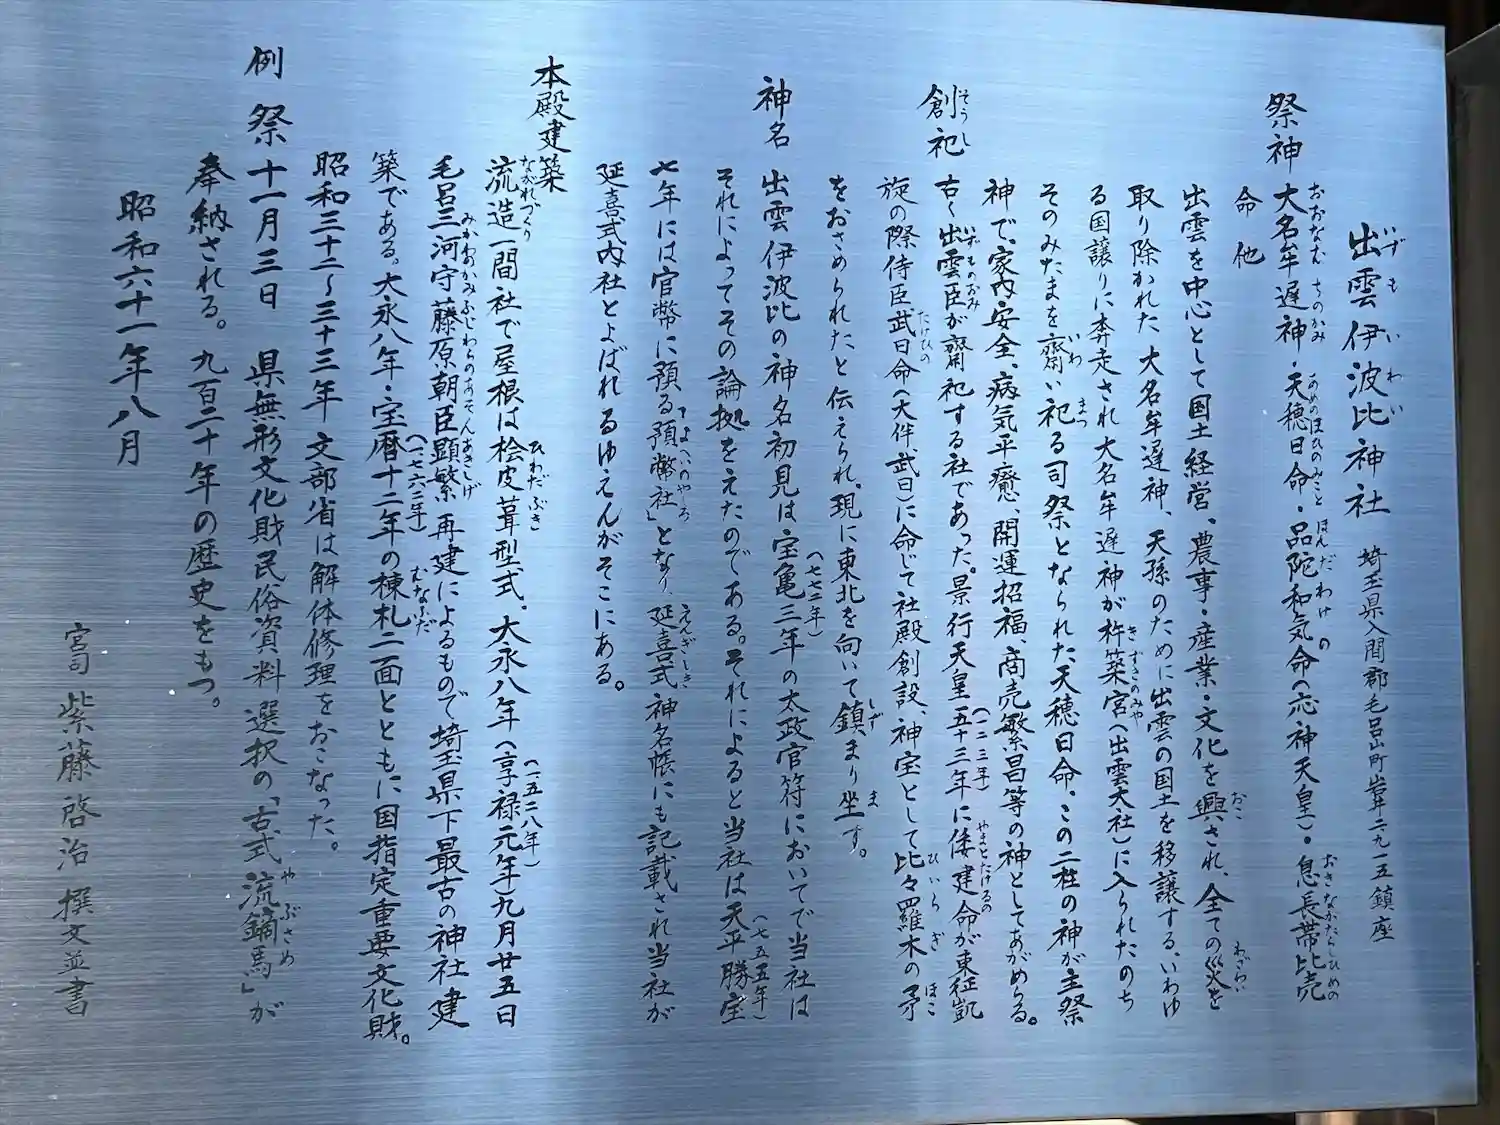 出雲伊波比神社 埼玉県入間郡毛呂山町岩井二九一五鎮座
祭神 大名牟遅神・天穂日命・品陀和気命(応神天皇)・息長帯比売
命他
出雲を中心として国土経営、農事・産業・文化を興され、全ての災を
取り除かれた大名牟遅神、天孫のために出雲の国土を移譲する、いわゆ
る国譲りに奔走され大名牟遅神が杵築宮(出雲大社)に入られたのち
そのみたまを齋い祀る司祭となられた天穂日命、この二柱の神が主祭
神で、家内安全、病気平癒、開運招福、商売繁昌等の神としてあがめらる。
創祀 古く出雲臣が齋祀する社であった。景行天皇五十三年(一二三年)に倭建命が東征凱
旋の際侍臣武日命(大伴武日)に命じて社殿創設、神宝として比々羅木の矛
をおさめられたと伝えられ、現に東北を向いて鎮まり坐す。
神名 出雲伊波比の神名初見は宝亀三年(七七二年)の太政官符においてで当社は
それによってその論拠をえたのである。それによると当社は天平勝宝
七年(七五五年)には官幣に預る「預幣社」となり延喜式神名帳にも記載され当社が
延喜式内社とよばれるゆえんがそこにある。
本殿建築
流造一間社で屋根は桧皮葺型式。大永八年(享禄元年一五二八年)九月廿五日
毛呂三河守藤原朝臣顕繁再建によるもので埼玉県下最古の神社建
築である。大永八年・宝暦十二年(一七六二年)の棟札二面とともに国指定重要文化財。
昭和三十二~三十三年文部省は解体修理をおこなった。
例祭 十一月三日 県無形文化財民俗資料選択の「古式流鏑馬」が
奉納される。九百二十年の歴史をもつ。
昭和六十一年八月
宮司 紫藤啓治 撰文並書